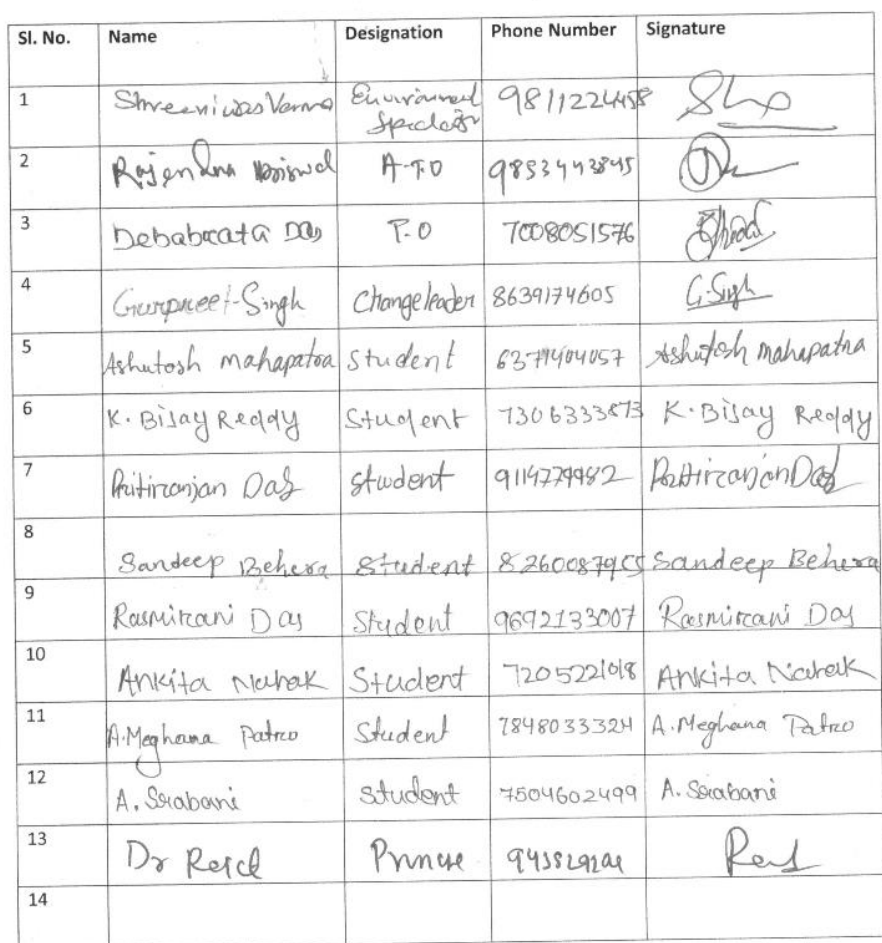 Sl. No. Name Designation Phone Number Signature
1 Shreeniwas Varma Environment 9811224458
Specialist
2 Rajendra A.T.O 9853443845
3 Debabrata Das P.O 7008051576
4 Gurpreet Singh Change leader 8639174605 G. Singh
5 Ashutosh mahapatra Student 6371404057 Ashutosh mahapatra
6 K. Bijay Reddy Student 7306333873 K. Bijay Reddy
7 Pritiranjan Das student 9114779982 Pritiranjan Das
8 Sandeep Behera Student Sandeep Behera
9 Rasmirani Das Student 9692133007 Rasmirani Das
10 Ankita Nahak Student 7205221018 Ankita Nahak
11 A. Meghana Patro Student 7848033324 A. Meghana Patro
12 A. Srabani student 7504602499 A. Srabani
13 Dr
14